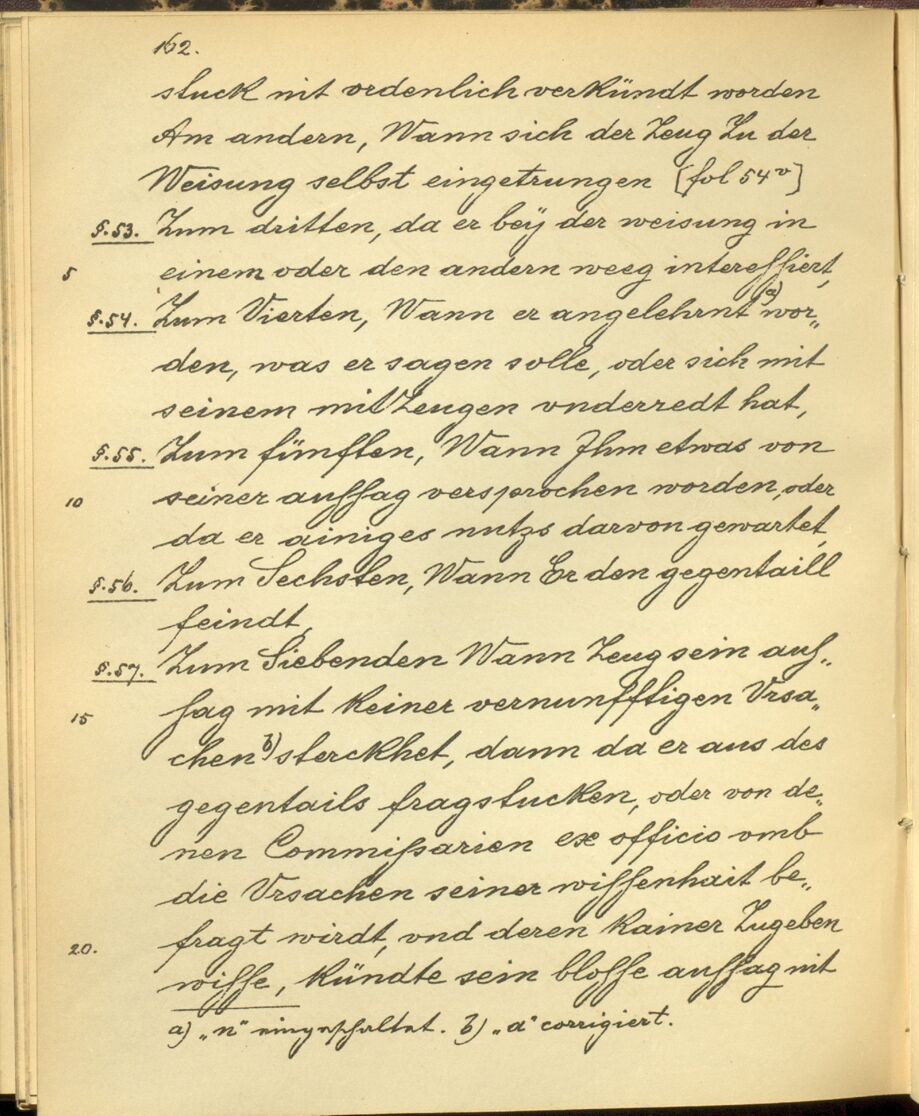 162.
stuck nit ordenlich verkündt worden
Am andern, Wann sich der Zeug Zu der
Weisung selbst eingetrungen [fol 54v]
§.53. Zum dritten, da er beÿ der weisung in
5 einem oder den andern weeg interessiert,
§.54. Zum Vierten, Wann er angelehrnt a) wor„
den, was er sagen solle, oder sich mit
seinem mit Zeugen vnderredt hat,
§.55. Zum fünften, Wann Ihm etwas von
10 seiner aussag versprochen worden, oder
da er ainiges nutzs darvon gewartet,
§.56. Zum Sechsten, Wann Er den gegentaill
feindt,
§.57. Zum Siebenden Wann Zeug sein aus„
15 sag mit keiner vernunfftigen Vrsa„
chen b) sterckhet, dann da er aus des
gegentails fragstucken, oder von de„
nen Commißarien ex officio vmb
die Vrsachen seiner wissenhait be„
20. fragt wirdt, vnd deren kainer Zugeben
wisse, kündte sein blosse aussag nit
a) „n“ eingeschaltet. b) „a“ corrigiert.